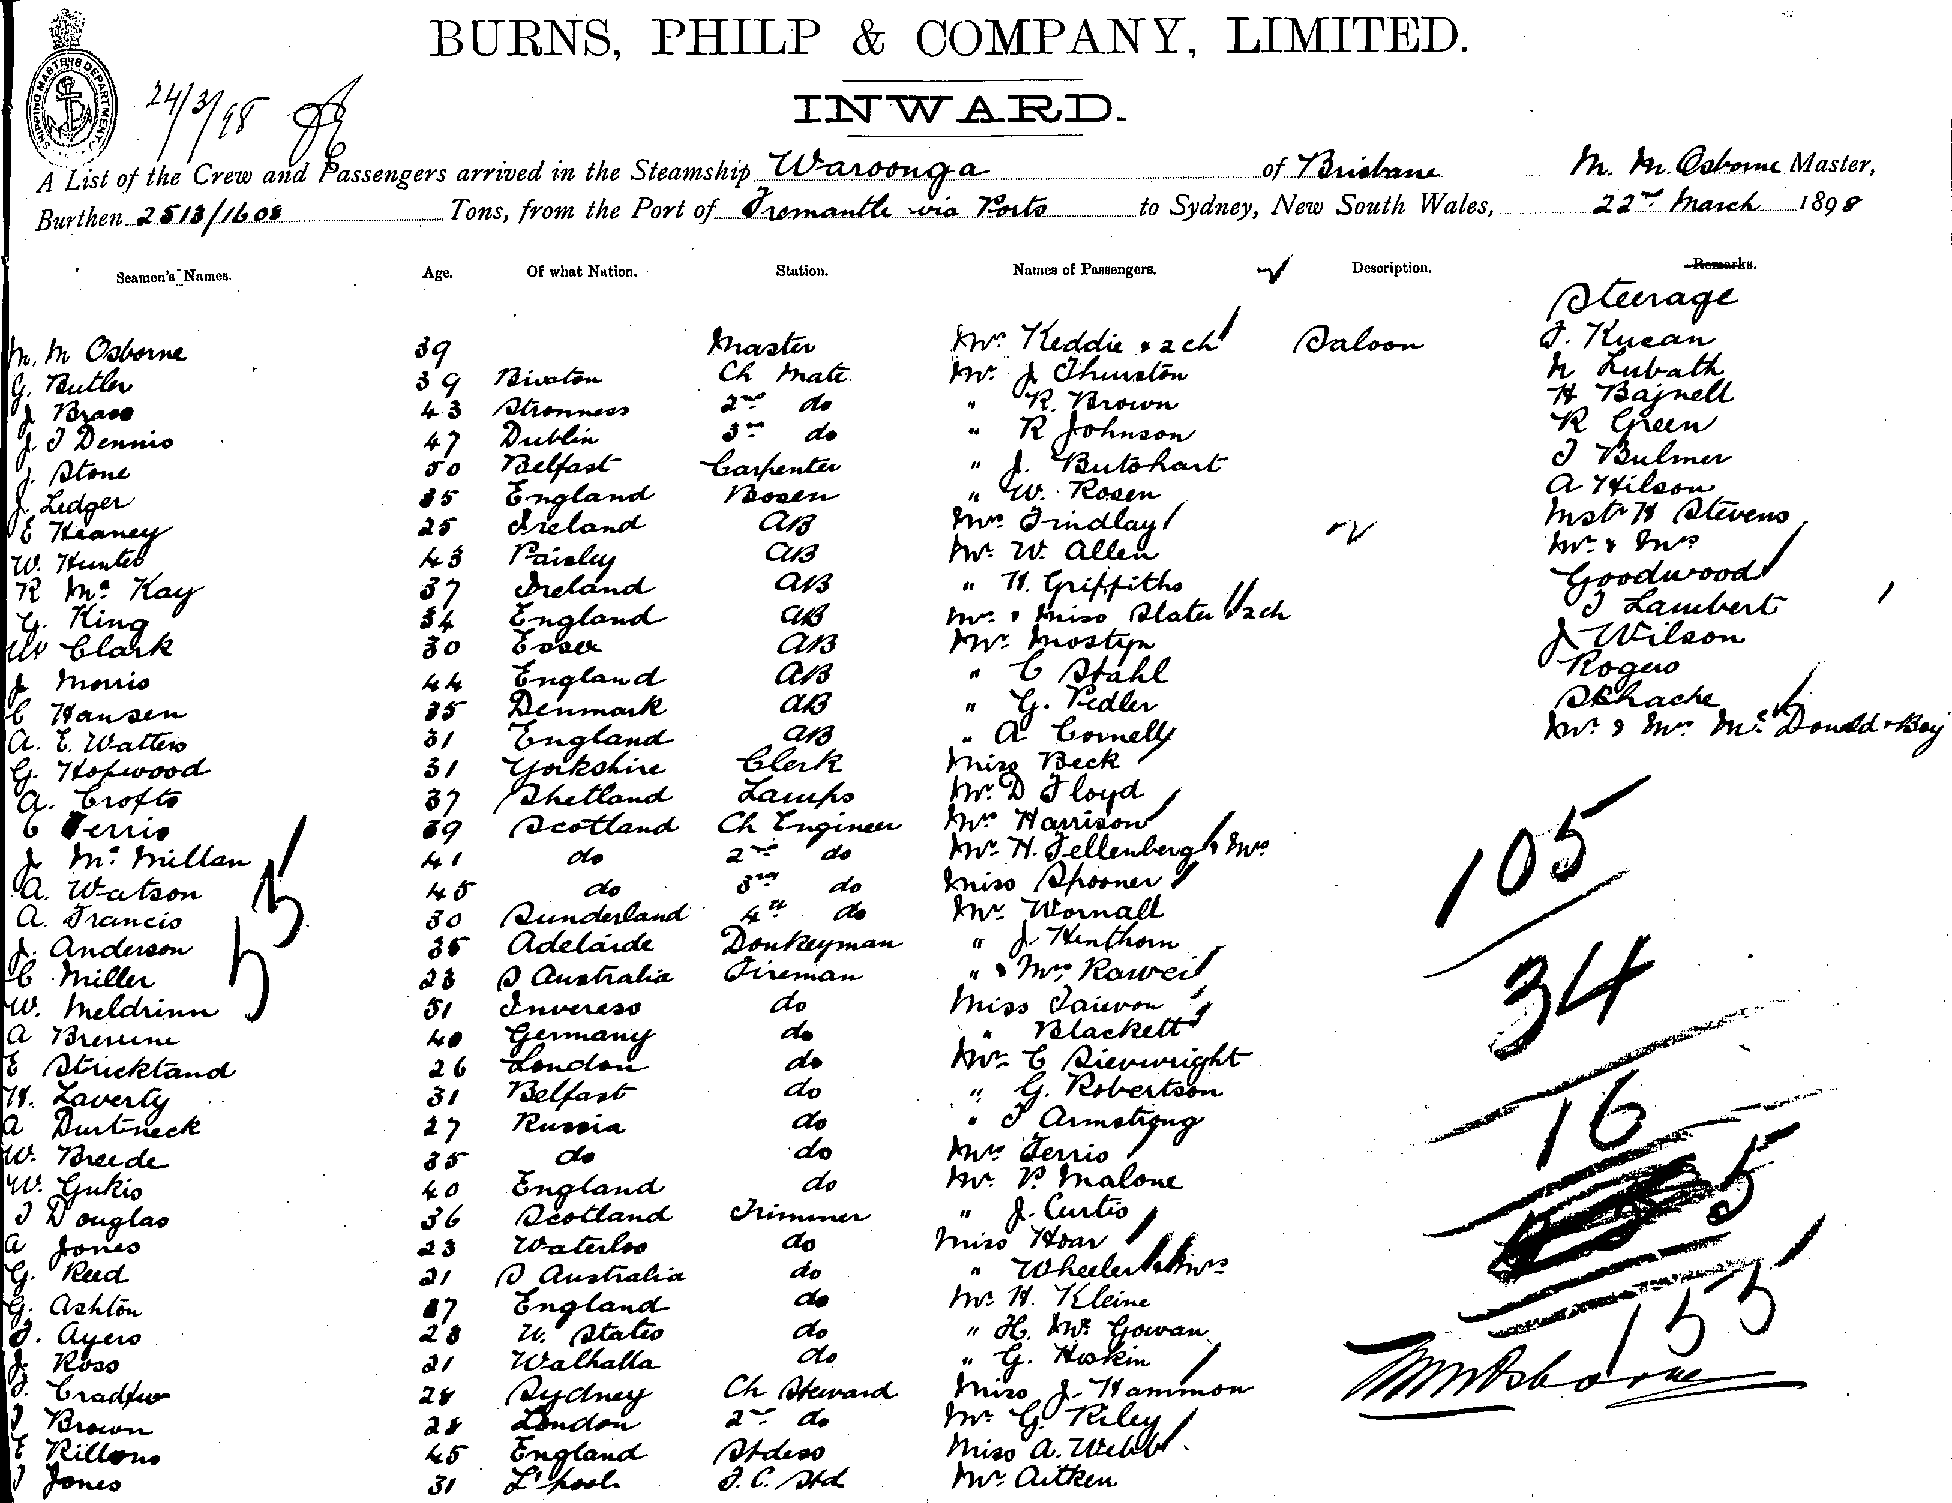 BURNS, PHILP & COMPANY, LIMITED.
24/3/98
INWARD.
A List of the Crew and Passengers arrived in the Steamship Waroonga of Brisbane M. M. Osborne Master,
Burthen 2513/1608 Tons, from the Port of Fremantle via Ports to Sydney, New South Wales, 22nd March 1898
Seamen's Names. Age. Of what Nation. Station. Names of Passengers. Description. Remarks.
Steerage
M. M Osborne 39 Master Mrs Keddie & 2 ch Saloon
G. Butler 39 Ch Mate Mr. J Thurston
J Brass 43 Stromness 2nd do " R. Brown H Bagnell
J. T Dennis 47 Dublin 3rd do " R Johnson R Green
J. Stone 50 Belfast Carpenter " J. Butchart T Bulmer
J Ledger 35 England Bosen " W. Rosen A Hilson
E Heaney 25 Ireland AB Mrs Findlay Mstr H Stevens
W. Hunter 43 Paisley AB Mr. W. Allen Mr. & Mrs
R Mc Kay 37 Ireland AB " H. Griffiths Goodwood
G. King 34 England AB Mrs & Miss Slater 2 ch T Lambert
W Clark 30 Essex AB Mr. Mostyn J Wilson
J Morris 44 England AB " C Stahl Rogers
C Hansen 35 Denmark AB " G. Pedler Schache
A. E. Watters 31 England AB " A Connelly Mr. & Mrs Mc Donald & Boy
G. Hopwood 31 Yorkshire Clerk Miss Beck
A. Crofts 37 Shetland Lamps Mr. D Floyd
C Ferris 39 Scotland Ch Engineer Mrs Harrison
J Mc Millan 41 do 2nd do Mr. H. Fellenberg & Mrs
A. Watson 45 do 3rd do Miss Spooner 105
A. Francis 30 Sunderland 4th do Mr. Wornall
J. Anderson 35 Adelaide Donkeyman " J Henthorn
C Miller 23 S Australia Fireman " & Mrs Rawei 34
W. Meldrinn 51 Inveress do Miss Taiwon
A 40 Germany do " Blackett
E Strickland 26 London do Mr. C Sievwright
H. Laverty 31 Belfast do " G. Robertson 16
A Durtneck 27 Russia do " T Armstrong
W. Breede 35 do do Mrs Ferris
W. Gukis 40 England do Mr. P. Malone 5
T Douglas 36 Scotland Trimmer " J. Curtis
A Jones 23 Waterloo do Miss Hoar
G. Reed 21 S Australia do " Wheeler & Mrs
G. Ashton 37 England do Mr. H. Kleine
T. Ayers 28 U. States do " H. Mc Gowan 155
J. Ross 21 Walhalla do " G. Hoskin
28 Sydney Ch Steward Miss J. Hammon M M Osborne
T Brown 28 London 2nd do Mr. G. Riley
E 45 England Stdess Miss A. Webb
T Jones 31 L'pool F. C. Std Mr. Aitken